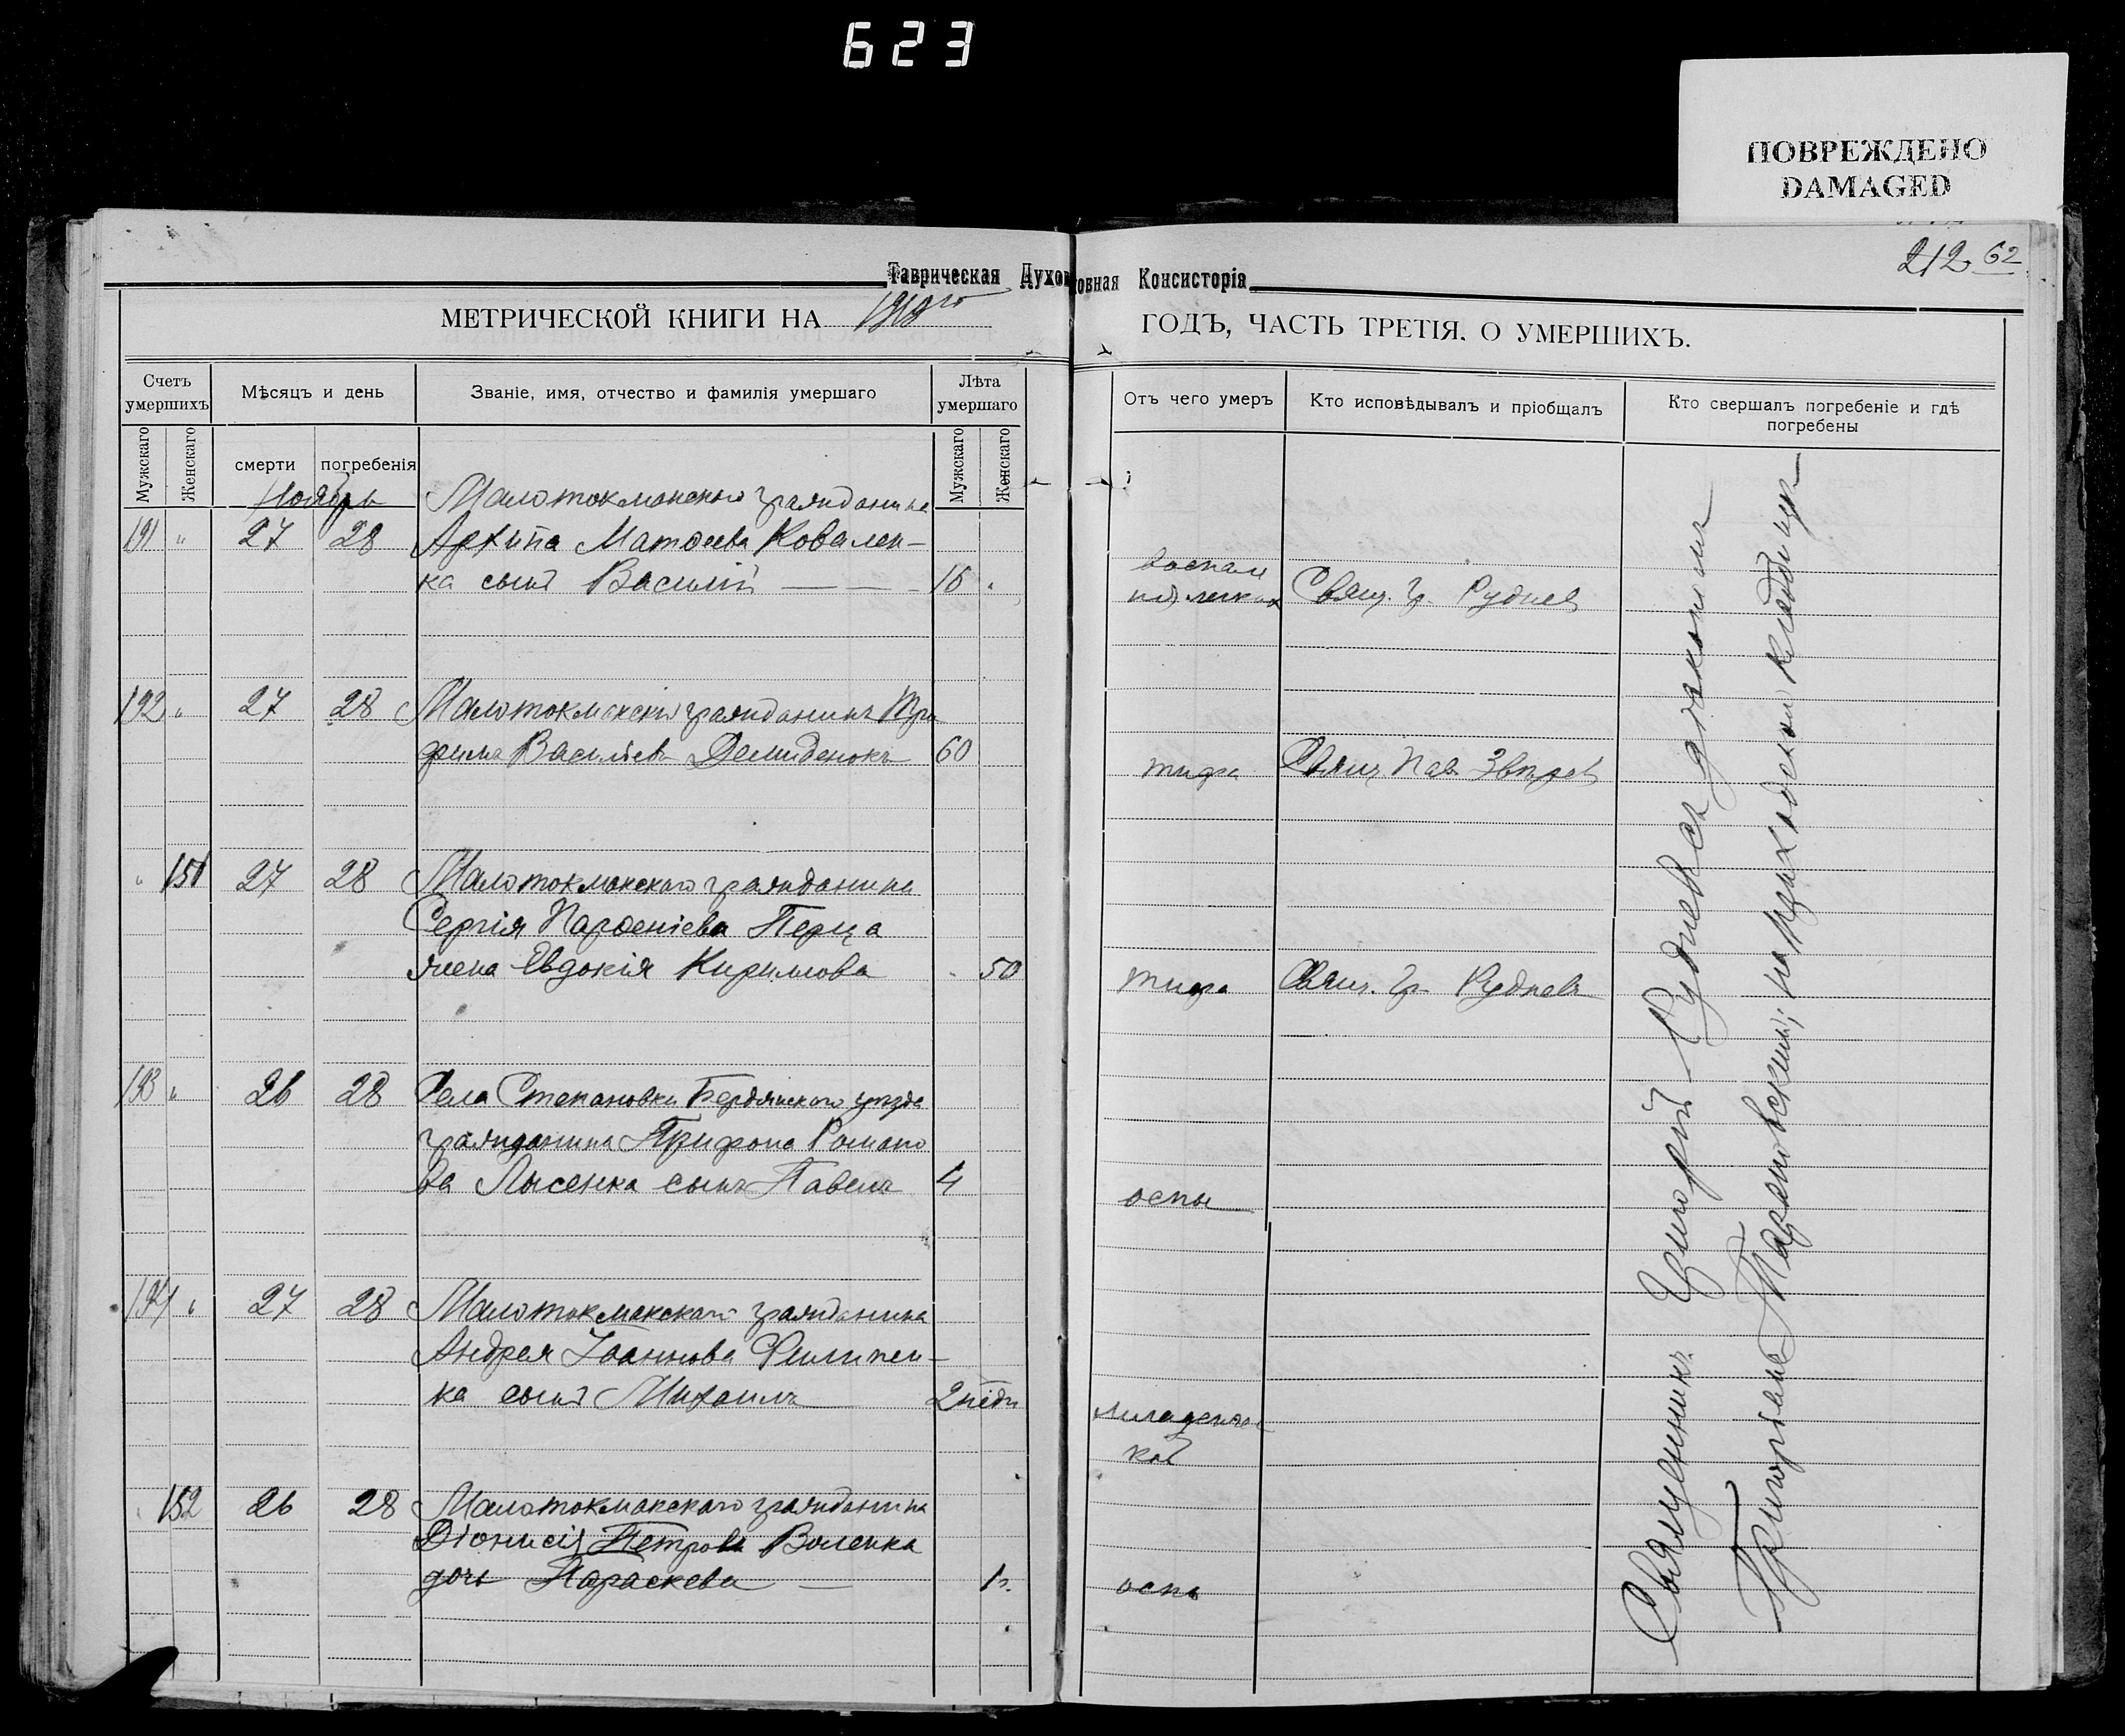 623
ПОВРЕЖДЕНО
DAMAGED
212 62
Таврическая Духовная Консисторія
МЕТРИЧЕСКОЙ КНИГИ НА
ГОДЪ, ЧАСТЬ ТРЕТІЯ, О УМЕРШИХЪ.
Счетъ умершихъ
Мѣсяцъ и день
Званіе, имя, отчество и фамилія умершаго
Лѣта умершаго
Отъ чего умеръ
Кто исповѣдывалъ и пріобщалъ
Кто свершалъ погребеніе и гдѣ погребены
Мужскаго
Женскаго
смерти
погребенія
Мужскаго
Женскаго
Ноябрь
Малотокмакскаго гражданина
191 " 27 28 Архипа Матѳеева Ковален-
ка сынъ Василій
воспал
легких Свящ. Гр. Руднев
192 " 27 28 Малотокмакскій гражданинъ Тро
фимъ Василіевъ Демиденокъ 60
тифа Свящ. Пав. Звѣрев
" 151 27 28 Малотокмакскаго гражданина
Сергія Парѳеніева Перца
жена Евдокія Кириллова 50
тифа Свящ. Гр. Рудневъ
193 " 26 28 Села Степановки Бердянскаго уѣзда
гражданина Трифона Романо
ва Лысенка сынъ Павелъ 4
оспы
194 " 27 28 Малотокмакскаго гражданина
Андрея Іоаннова Филипен-
ка сынъ Михаилъ 2 нед.
младенчес
кой
152 26 28 Малотокмакскаго гражданина
Діонисія Петрова Воленка
дочь Параскева 1 г.
оспы
Священникъ Григорій Рудневъ съ діакономъ
Григоріемъ Тарановскимъ; на приходском кладбищѣ